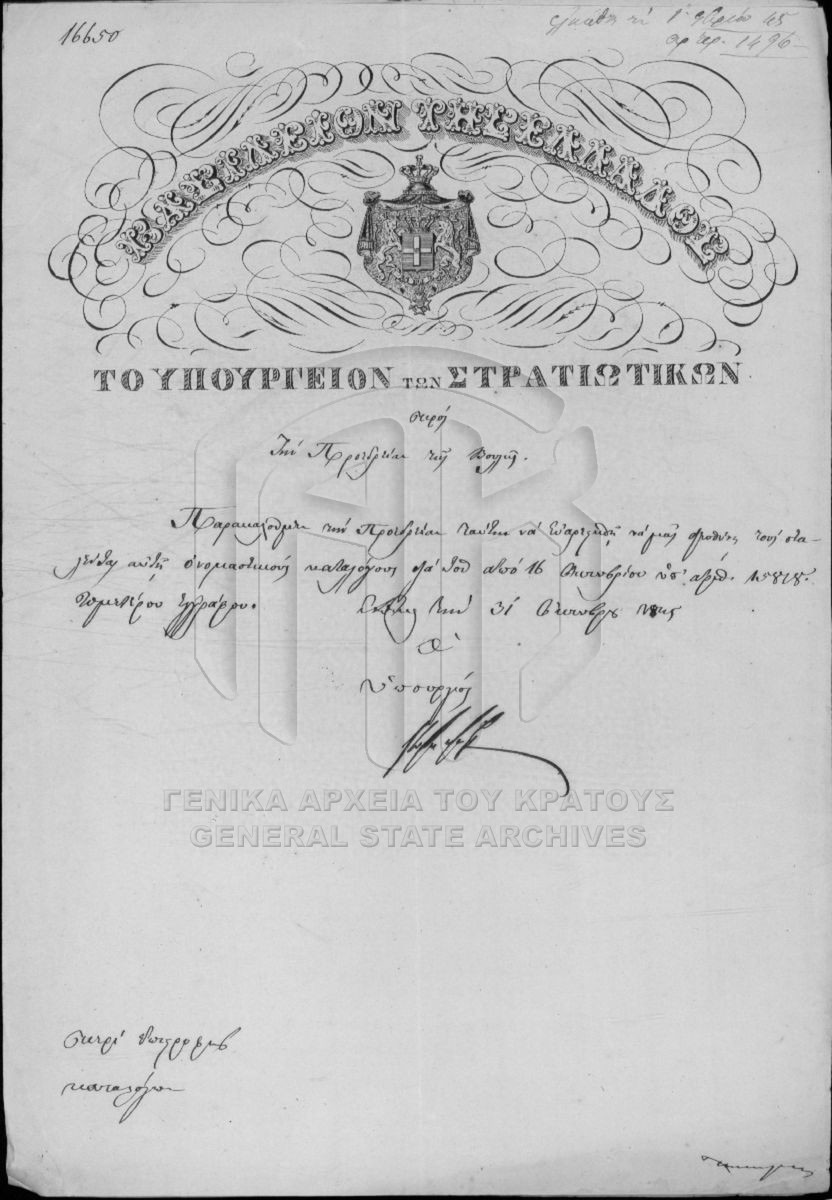 16650
ἐλήφθη τῇ 1 9βρίου 45
αρ. πρ. 1496
ΒΑΣΙΛΕΙΟΝ ΤΗΣ ΕΛΛΑΔΟΣ
ΤΟ ΥΠΟΥΡΓΕΙΟΝ ΤΩΝ ΣΤΡΑΤΙΩΤΙΚΩΝ
πρὸς
Τὴν Προεδρείαν τῆς Βουλῆς.
Παρακαλοῦμεν τὴν Προεδρείαν ταύτην νὰ εὐαρεστηθῇ νὰ μᾶς τοὺς στα-
λέντας αὐτῇ ὀνομαστικοὺς καταλόγους διὰ τοῦ ἀπὸ 16 Ὀκτωβρίου ὑπ' ἀριθ. 15818.
ἡμετέρου ἐγγράφου. τὴν 31 Ὀκτωβρ 1845
Ὁ
Ὑπουργὸς
ΓΕΝΙΚΑ ΑΡΧΕΙΑ ΤΟΥ ΚΡΑΤΟΥΣ
GENERAL STATE ARCHIVES
περὶ
καταλόγων